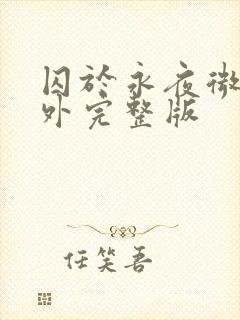 囚於永夜微
外完整版
任笑吾